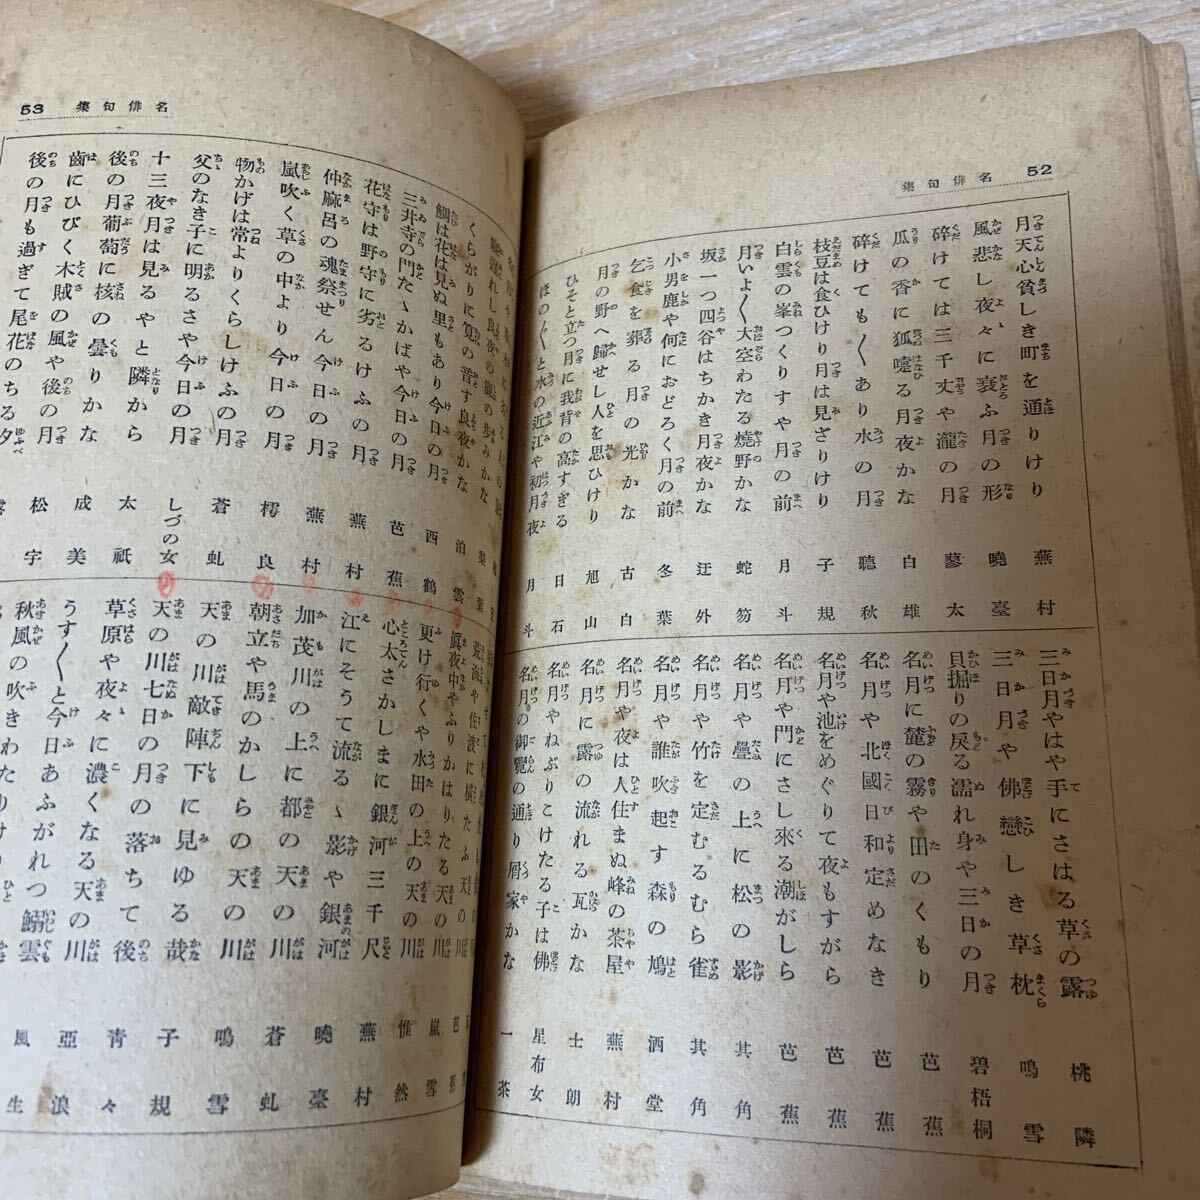 52 名俳句集
月天心貧しき町を通りけり 蕪村
風悲し夜々に衰ふ月の形 曉臺
碎けては三千丈や瀧の月 蓼太
瓜の香に狐嚏る月夜かな 白雄
碎けても〱あり水の月 聽秋
枝豆は食ひけり月は見ざりけり 子規
白雲の峯つくりすや月の前 月斗
月いよ〱大空わたる燒野かな 蛇笏
坂一つ四谷はちかき月夜かな 迂外
小男鹿や何におどろく月の前 冬葉
乞食を葬る月の光かな 古白
月の野へ歸せし人を思ひけり 旭山
ひそと立つ月に我背の高すぎる 日石
ほの〱と水の近江や初月夜 月斗
三日月やはや手にさはる草の露 桃隣
三日月や佛戀しき草枕 鳴雪
貝掘りの戻る濡れ身や三日の月 碧梧桐
名月に麓の霧や田のくもり 芭蕉
名月や北國日和定めなき 芭蕉
名月や池をめぐりて夜もすがら 芭蕉
名月や門にさし來る潮がしら 芭蕉
名月や疊の上に松の影 其角
名月や竹を定むるむら雀 其角
名月や誰吹起す森の鳩 洒堂
名月や夜は人住まぬ峰の茶屋 蕪村
名月に露の流れる瓦かな 士朗
名月やねぶりこけたる子は佛 星布女
名月の御覽の通り屑家かな 一茶
53 名俳句集
くらがりに筧の音す良夜かな 泊雲
鯛は花は見ぬ里もあり今日の月 西鶴
三井寺の門たゝかばや今日の月 芭蕉
花守は野守に劣るけふの月 蕪村
仲麻呂の魂祭せん今日の月 蕪村
嵐吹く草の中より今日の月 樗良
物かげは常よりくらしけふの月 蒼虬
父のなき子に明るさや今日の月 しづの女
十三夜月は見るやと隣から 太祇
後の月葡萄に核の曇りかな 成美
齒にひびく木賊の風や後の月 松宇
後の月も過ぎて尾花のちる夕
眞夜中やふりかはりたる天の川 嵐雪
更け行くや水田の上の天の川 惟然
心太さかしまに銀河三千尺 蕪村
江にそうて流るゝ影や銀河 曉臺
加茂川の上に都の天の川 蒼虬
朝立や馬のかしらの天の川 鳴雪
天の川敵陣下に見ゆる哉 子規
天の川七日の月の落ちて後 青々
草原や夜々に濃くなる天の川 亞浪
うす〱と今日あふがれつ鰯雲 風生